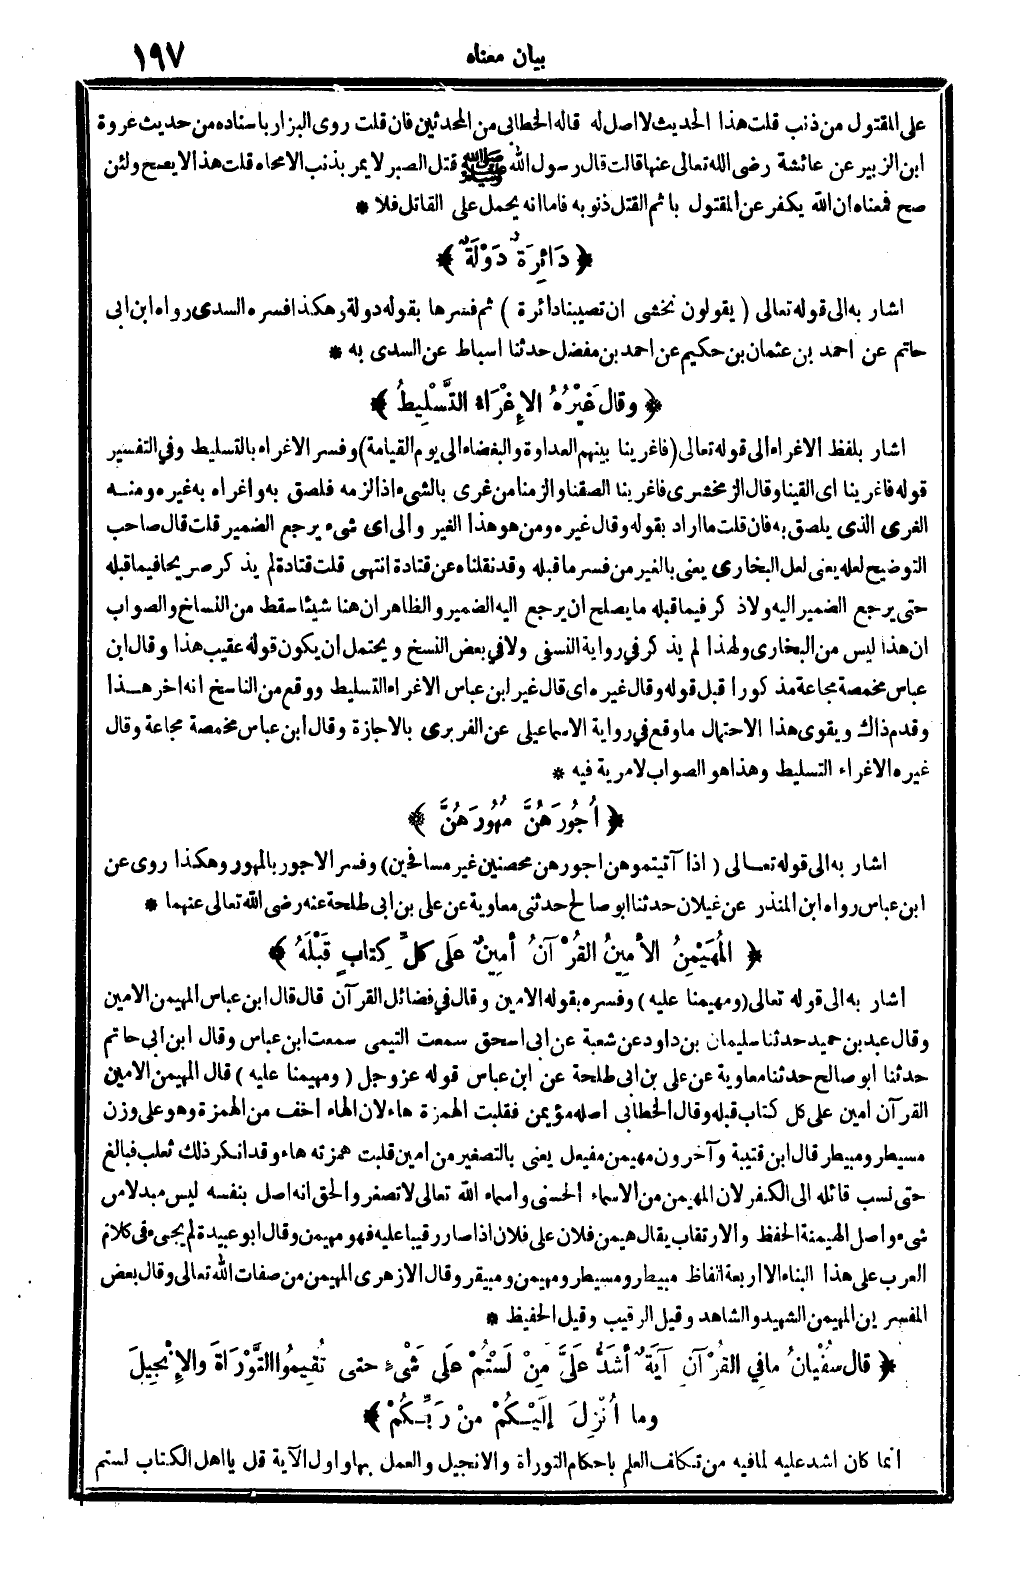 بيان معناه ١٩٧
على المقتول من ذنب قلت هذا الحديث لا اصل له قاله الخطابى من المحدثين فان قلت روى البزار باسناده من حديث عروة
ابن الزبير عن عائشة رضى الله تعالى عنها قالت قال رسول الله ﷺ قتل الصبر لا يمر بذنب الامحاه قلت هذا لا يصح ولئن
صح فمعناه ان الله يكفر عن المقتول باثم القتل ذنوبه فاما انه يحمل على القاتل فلا *
﴿ دَائِرَةٌ دَوْلَةٌ ﴾
اشار به الى قوله تعالى ( يقولون نخشى ان تصيبنا دائرة ) ثم فسرها بقوله دولة وهكذا فسره السدى رواه ابن ابى
حاتم عن احمد بن عثمان بن حكيم عن احمد بن مفضل حدثنا اسباط عن السدى به *
﴿ وقال غَيْرُهُ الإِغْرَاءُ التَّسْلِيطُ ﴾
اشار بلفظ الاغراء الى قوله تعالى (فاغرينا بينهم العداوة والبغضاء الى يوم القيامة) وفسر الاغراء بالتسليط وفي التفسير
قوله فاغرينا اى القينا وقال الزمخشرى فاغرينا الصقنا والزمنا من غرى بالشىء اذا لزمه فلصق به واغراه به غيره ومنه
الغرى الذى يلصق به فان قلت ما اراد بقوله وقال غيره ومن هو هذا الغير والى اى شىء يرجع الضمير قلت قال صاحب
التوضيح لعله يعنى لعل البخارى يعنى بالغير من فسر ما قبله وقد نقلناه عن قتادة انتهى قلت قتادة لم يذكر صريحا فيما قبله
حتى يرجع الضمير اليه ولا ذكر فيما قبله ما يصلح ان يرجع اليه الضمير والظاهر ان هنا شيئا سقط من النساخ والصواب
ان هذا ليس من البخارى ولهذا لم يذكر في رواية النسفى ولا في بعض النسخ ويحتمل ان يكون قوله عقيب هذا وقال ابن
عباس مخمصة مجاعة مذكورا قبل قوله وقال غيره اى قال غير ابن عباس الاغراء التسليط ووقع من الناسخ انه اخر هذا
وقدم ذاك ويقوى هذا الاحتمال ما وقع في رواية الاسماعيلى عن الفربرى بالاجازة وقال ابن عباس مخمصة مجاعة وقال
غيره الاغراء التسليط وهذا هو الصواب لا مرية فيه *
﴿ أُجُورَهُنَّ مُهُورَهُنَّ ﴾
اشار به الى قوله تعالى ( اذا آتيتموهن اجورهن محصنين غير مسافحين) وفسر الاجور بالمهور وهكذا روى عن
ابن عباس رواه ابن المنذر عن غيلان حدثنا ابو صالح حدثنى معاوية عن على بن ابى طلحة عنه رضى الله تعالى عنهما *
﴿ المُهَيْمِنُ الأمِينُ القُرْآنُ أمِينٌ عَلَى كلِّ كِتابٍ قَبْلَهُ ﴾
اشار به الى قوله تعالى (ومهيمنا عليه) وفسره بقوله الامين وقال في فضائل القرآن قال قال ابن عباس المهيمن الامين
وقال عبد بن حميد حدثنا سليمان بن داود عن شعبة عن ابى اسحق سمعت التيمى سمعت ابن عباس وقال ابن ابى حاتم
حدثنا ابو صالح حدثنا معاوية عن على بن ابى طلحة عن ابن عباس قوله عز وجل ( ومهيمنا عليه ) قال المهيمن الامين
القرآن امين على كل كتاب قبله وقال الخطابى اصله مؤيمن فقلبت الهمزة هاء لان الهاء اخف من الهمزة وهو على وزن
مسيطر ومبيطر قال ابن قتيبة وآخرون مهيمن مفيعل يعنى بالتصغير من امين قلبت همزته هاء وقد انكر ذلك ثعلب فبالغ
حتى نسب قائله الى الكفر لان المهيمن من الاسماء الحسنى واسماء الله تعالى لا تصغر والحق انه اصل بنفسه ليس مبدلا من
شىء واصل الهيمنة الحفظ والارتقاب يقال هيمن فلان على فلان اذا صار رقيبا عليه فهو مهيمن وقال ابو عبيدة لم يجىء فى كلام
العرب على هذا البناء الا اربعة الفاظ مبيطر ومسيطر ومهيمن ومبيقر وقال الازهرى المهيمن من صفات الله تعالى وقال بعض
المفسرين المهيمن الشهيد والشاهد وقيل الرقيب وقيل الحفيظ *
﴿ قال سُفْيانُ ما فى القُرْآنِ آيَةٌ أشَدُّ عَلَىَّ مِنْ لَسْتُمْ عَلَى شَىْءٍ حتى تُقِيمُوا التَّوْرَاةَ والإنْجِيلَ
وما أُنْزِلَ إلَيْكُمْ مِنْ رَبِّكُمْ ﴾
انما كان اشد عليه لما فيه من تكلف العلم باحكام التوراة والانجيل والعمل بها واول الآية قل يا اهل الكتاب لستم